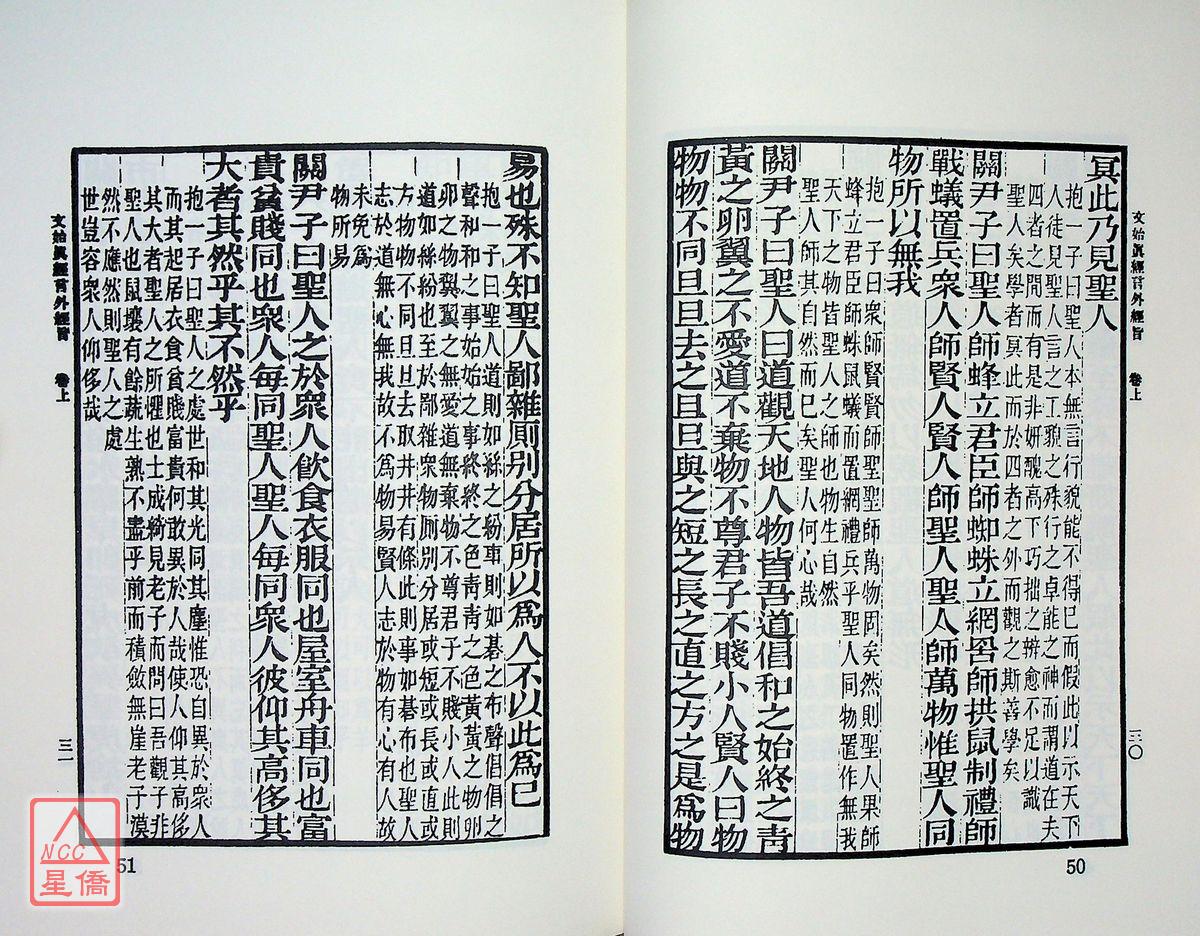 文始眞經言外經旨　卷上
三〇
冥此乃見聖人
抱一子曰聖人本無言行貌能不得已而假此以示天下
人徒見聖人言之工貌之殊行之卓能之神而謂道在夫
四者之間而有是非妍醜高下巧拙之辨愈不足以識
聖人矣學者冥此而於四者之外而觀之斯善學矣
關尹子曰聖人師蜂立君臣師蜘蛛立網罟師拱鼠制禮師
戰蟻置兵衆人師賢人賢人師聖人聖人師萬物惟聖人同
物所以無我
抱一子曰衆師賢賢師聖聖師萬物固矣然則聖人果師
蜂立君臣師蛛鼠蟻而置網禮兵乎聖人同物置作無我
天下之物皆聖人之師也物生自然
聖人師其自然而已矣聖人何心哉
關尹子曰聖人曰道觀天地人物皆吾道倡和之始終之靑
黃之卵翼之不愛道不棄物不尊君子不賤小人賢人曰物
物物不同旦旦去之旦旦與之短之長之直之方之是爲物
50
易也殊不知聖人鄙雜厠别分居所以爲人不以此爲已
抱一子曰聖人道則如絲之紛車則如碁之布聲倡倡之
聲和和之事始始之事終終之色靑靑之色黃黃之物卵
卵之物翼翼之無愛道無棄物不尊君子不賤小人此則
道如絲紛也至於鄙雜衆物厠别分居或短或長或直或
方物物不同旦旦去取井井有條此則事如碁布也聖人
志於道無心無我故不爲物易賢人志於物有心有人故
未免爲
物所易
關尹子曰聖人之於衆人飲食衣服同也屋室舟車同也富
貴貧賤同也衆人每同聖人聖人每同衆人彼仰其高侈其
大者其然乎其不然乎
抱一子曰聖人之處世和其光同其塵惟恐自異於衆人
而其起居衣食貧賤富貴何敢異於人哉使人仰其高侈
其大者聖人之所懼也士成綺見老子而問曰吾觀子非
聖人也鼠壤有餘蔬生熟不盡乎前而積斂無崖老子漠
然不應然則聖人之處
世豈容衆人仰侈哉
文始眞經言外經旨　卷上
三一
51
NCC
星僑